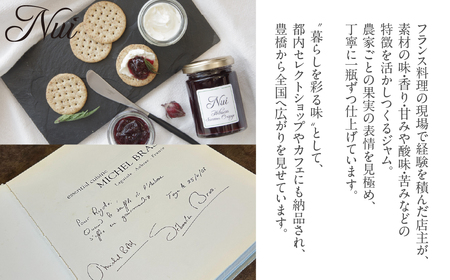 Nui
Nui
essential cuisine
MICHEL BRAS
フランス料理の現場で経験を積んだ店主が、
素材の味・香り・甘みや酸味・苦みなどの
特徴を活かしつくるジャム。
農家ごとの果実の表情を見極め、
丁寧に一瓶ずつ仕上げています。
“暮らしを彩る味”として、
都内セレクトショップやカフェにも納品され、
豊橋から全国へ広がりを見せています。